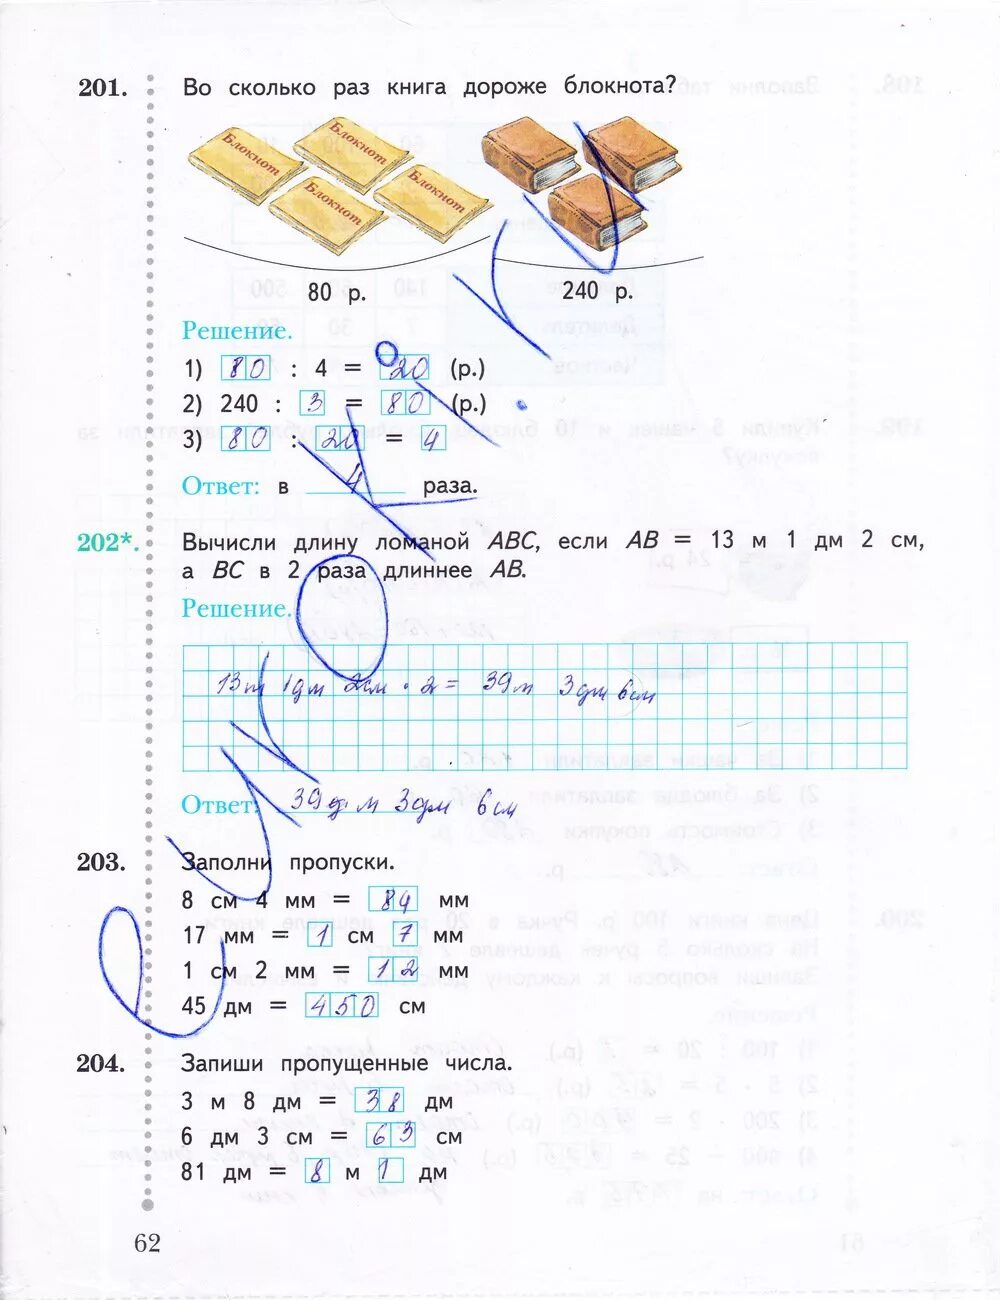 201. Во сколько раз книга дороже блокнота?
Блокнот Блокнот Блокнот Блокнот
80 р. 240 р.
Решение.
1) 80 : 4 = 20 (р.)
2) 240 : 3 = 80 (р.)
3) 80 : 20 = 4
Ответ: в 4 раза.
202*. Вычисли длину ломаной ABC, если AB = 13 м 1 дм 2 см,
а BC в 2 раза длиннее AB.
Решение.
13м 1дм 2см · 2 = 39м 3дм 6см
Ответ: 39 д м 3дм 6см
203. Заполни пропуски.
8 см 4 мм = 84 мм
17 мм = 1 см 7 мм
1 см 2 мм = 12 мм
45 дм = 450 см
204. Запиши пропущенные числа.
3 м 8 дм = 38 дм
6 дм 3 см = 63 см
81 дм = 8 м 1 дм
62